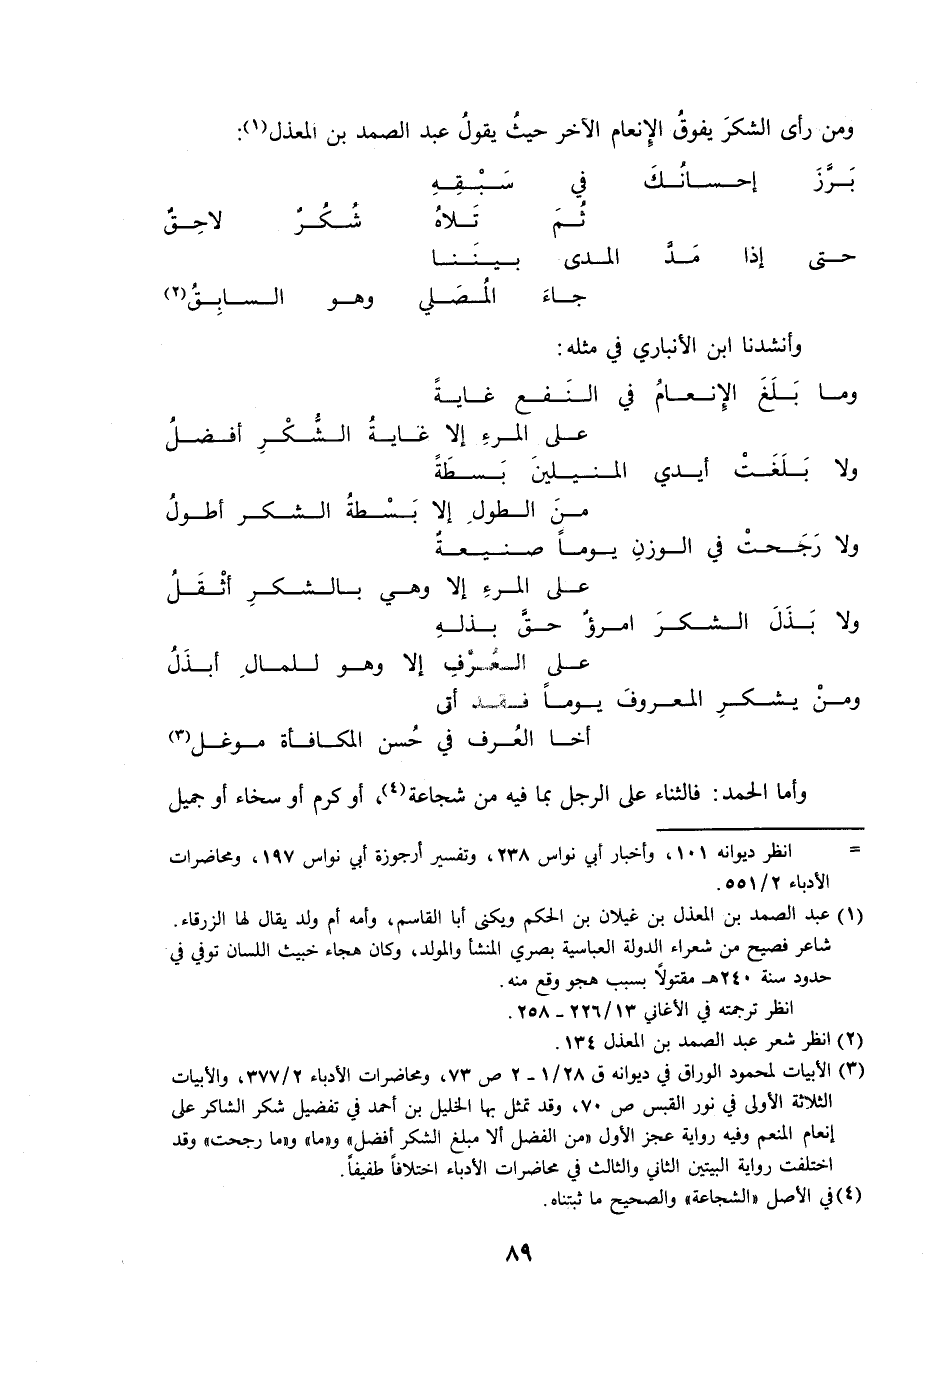 ومن رأى الشكرَ يفوقُ الإنعام الآخر حيثُ يقولُ عبد الصمد بن المعذل(١):
بَرَّزَ إحسانُكَ في سَبْقِهِ
ثُمَ تَلاهُ شُكُرٌ لاحِقٌ
حتى إذا مَدَّ المدى بيننا
جاءَ المُصَلي وهو السابِقُ(٢)
وأنشدنا ابن الأنباري في مثله:
وما بَلَغَ الإنعامُ في النَفعِ غايةً
على المرءِ إلا غايةُ الشُّكْرِ أفضلُ
ولا بَلَغَتْ أيدي المنيلينَ بَسطَةً
منَ الطولِ إلا بَسْطةُ الشكرِ أطولُ
ولا رَجَحتْ في الوزنِ يوماً صنيعةً
على المرءِ إلا وهي بالشكرِ أثْقَلُ
ولا بَذَلَ الشكرَ امرؤٌ حقَّ بذلهِ
على العُرْفِ إلا وهو للمالِ أبذَلُ
ومنْ يشكرِ المعروفَ يوماً فقد أتى
أخا العُرف في حُسن المكافأة موغل(٣)
وأما الحمد: فالثناء على الرجل بما فيه من شجاعة(٤)، أو كرم أو سخاء أو جميل
= انظر ديوانه ١٠١، وأخبار أبي نواس ٢٣٨، وتفسير أرجوزة أبي نواس ١٩٧، ومحاضرات
الأدباء ٥٥١/٢.
(١) عبد الصمد بن المعذل بن غيلان بن الحكم ويكنى أبا القاسم، وأمه أم ولد يقال لها الزرقاء.
شاعر فصيح من شعراء الدولة العباسية بصري المنشأ والمولد، وكان هجاء خبيث اللسان توفي في
حدود سنة ٢٤٠هـ مقتولاً بسبب هجو وقع منه.
انظر ترجمته في الأغاني ٢٢٦/١٣ - ٢٥٨.
(٢) انظر شعر عبد الصمد بن المعذل ١٣٤.
(٣) الأبيات لمحمود الوراق في ديوانه ق ١/٢٨ - ٢ ص ٧٣، ومحاضرات الأدباء ٣٧٧/٢، والأبيات
الثلاثة الأولى في نور القبس ص ٧٠، وقد تمثل بها الخليل بن أحمد في تفضيل شكر الشاكر على
إنعام المنعم وفيه رواية عجز الأول «من الفضل ألا مبلغ الشكر أفضل» و«ما» و«ما رجحت» وقد
اختلفت رواية البيتين الثاني والثالث في محاضرات الأدباء اختلافاً طفيفاً.
(٤) في الأصل «الشجاعة» والصحيح ما ثبتناه.
٨٩